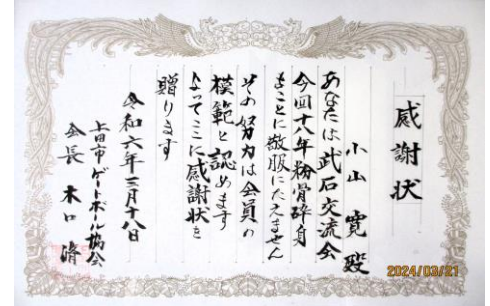 感謝状
小山 寛 殿
あなたは武石交流会
今回十八年粉骨砕身
まことに敬服にたえません
その努力は会員の
模範と認めます
よってここに感謝状を
贈ります
令和六年三月十八日
上田市ゲートボール協会
会長 木口 濟
2024/03/21